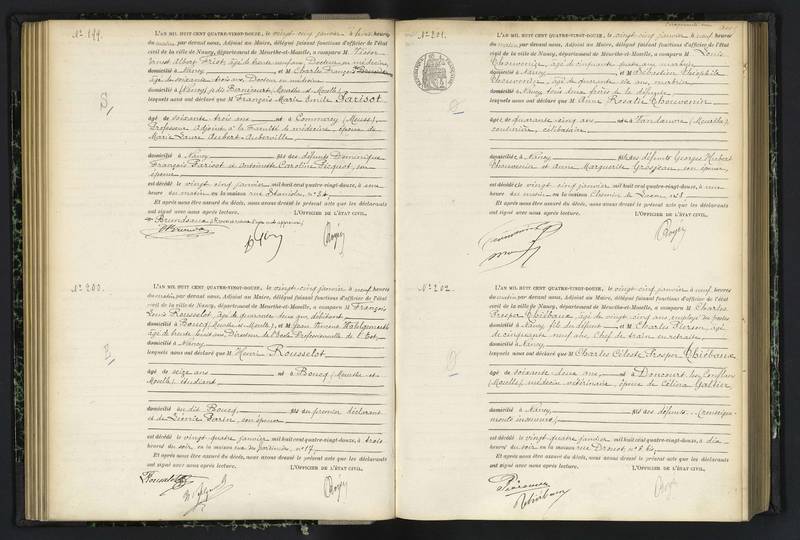 N° 199.
L'AN MIL HUIT CENT QUATRE-VINGT-DOUZE, le vingt-cinq janvier à heures
du matin par devant nous, Adjoint au Maire, délégué faisant fonctions d'officier de l'état
civil de la ville de Nancy, département de Meurthe-et-Moselle, a comparu M. Victor
Ernest Albert Friot, âgé de trente neuf ans, Docteur en médecine
domicilié à Nancy et M Charles François
âgé de soixante trois ans, Docteur en médecine
domicilié à (Meurthe et Moselle)
lesquels nous ont déclaré que M François Marie Emile Parisot
âgé de soixante trois ans né à Commercy (Meuse)
Professeur Adjoint à la Faculté de médecine, époux de
Marie Laure Aubert-Auberville
domicilié à Nancy fils des défunts Dominique
François Parisot et Antoinette Caroline Picquot, son
épouse
est décédé le vingt cinq janvier mil huit cent quatre-vingt-douze, à une
heure du matin en la maison rue Stanislas, n°
Et après nous être assuré du décès, nous avons dressé le présent acte que les déclarants
ont signé avec nous après lecture. L'OFFICIER DE L'ÉTAT CIVIL,
N° 200.
L'AN MIL HUIT CENT QUATRE-VINGT-DOUZE, le vingt-cinq janvier à neuf heures
du matin par devant nous, Adjoint au Maire, délégué faisant fonctions d'officier de l'état
civil de la ville de Nancy, département de Meurthe-et-Moselle, a comparu M François
Louis Rousselot, âgé de quarante deux ans débitant
domicilié à Boucq (Meurthe et Moselle) et M Jean Vincent
âgé de trente huit ans, Directeur de l'Ecole Professionnelle de l'Est,
domicilié à Nancy
lesquels nous ont déclaré que M Henri Rousselot
âgé de seize ans né à Boucq (Meurthe-et-
Moselle) étudiant
domicilié au dit Boucq, fils du premier déclarant
et de Léonie Parin, son épouse
est décédé le vingt-quatre janvier mil huit cent quatre-vingt-douze, à trois
heures du soir en la maison rue des Jardiniers, n° 17
Et après nous être assuré du décès, nous avons dressé le présent acte que les déclarants
ont signé avec nous après lecture. L'OFFICIER DE L'ÉTAT CIVIL,
N° 201.
L'AN MIL HUIT CENT QUATRE-VINGT-DOUZE, le vingt-cinq janvier à neuf heures
du matin par devant nous, Adjoint au Maire, délégué faisant fonctions d'officier de l'état
civil de la ville de Nancy, département de Meurthe-et-Moselle, a comparu M Louis
Thouvenin, âgé de cinquante quatre ans,
domicilié à Nancy et M Sébastien Théophile
Thouvenin, âgé de quarante six ans,
domicilié à Nancy tous deux frères de la défunte
lesquels nous ont déclaré que M Anne Rosalie Thouvenin
âgée de quarante cinq ans née à Vandoeuvre (Meurthe)
couturière, célibataire
domiciliée à Nancy fille des défunts Georges Hubert
Thouvenin et Anne Marguerite Grosjean, son épouse
est décédée le vingt cinq janvier mil huit cent quatre-vingt-douze, à une
heure du matin en la maison
Et après nous être assuré du décès, nous avons dressé le présent acte que les déclarants
ont signé avec nous après lecture. L'OFFICIER DE L'ÉTAT CIVIL,
N° 202.
L'AN MIL HUIT CENT QUATRE-VINGT-DOUZE, le vingt-cinq janvier à neuf heures
du matin par devant nous, Adjoint au Maire, délégué faisant fonctions d'officier de l'état
civil de la ville de Nancy, département de Meurthe-et-Moselle, a comparu M Charles
Prosper Thiébaux, âgé de vingt cinq ans, employé des postes
domicilié à Nancy fils du défunt et M Charles Pierson, âgé
de cinquante neuf ans, Chef de train en retraite,
domicilié à Nancy
lesquels nous ont déclaré que M Charles Céleste Prosper Thiébaux
âgé de soixante deux ans né à Doncourt les Conflans
(Moselle) médecin vétérinaire, époux de Célina Galtier
domicilié à Nancy fils des défunts (renseigne-
ments inconnus)
est décédé le vingt quatre janvier mil huit cent quatre-vingt-douze, à dix
heures du soir en la maison rue Drouot n° 6 bis
Et après nous être assuré du décès, nous avons dressé le présent acte que les déclarants
ont signé avec nous après lecture. L'OFFICIER DE L'ÉTAT CIVIL,